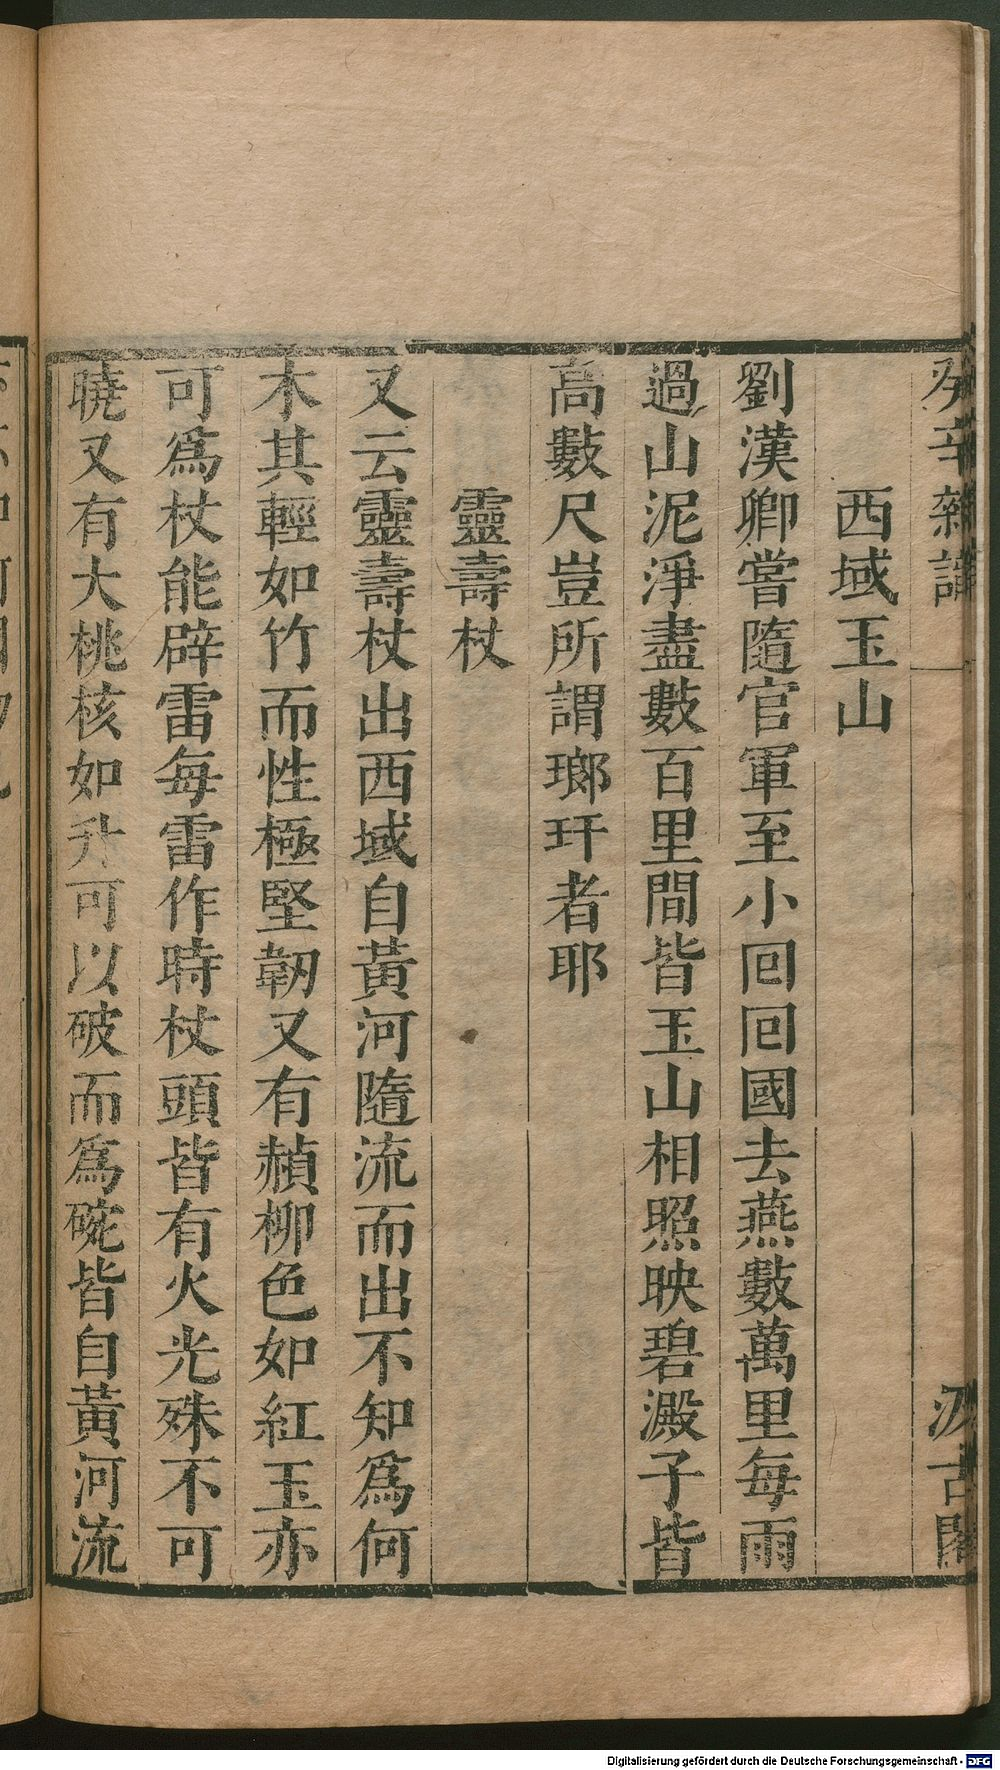 癸辛雜識
汲古閣
西域玉山
劉漢卿嘗隨官軍至小囘囘國去燕數萬里每雨
過山泥淨盡數百里間皆玉山相照映碧澱子皆
高數尺豈所謂瑯玕者耶
靈壽杖
又云靈壽杖出西域自黃河隨流而出不知爲何
木其輕如竹而性極堅韌又有赬柳色如紅玉亦
可爲杖能辟雷每雷作時杖頭皆有火光殊不可
曉又有大桃核如升可以破而爲碗皆自黃河流
Digitalisierung gefördert durch die Deutsche Forschungsgemeinschaft - DFG